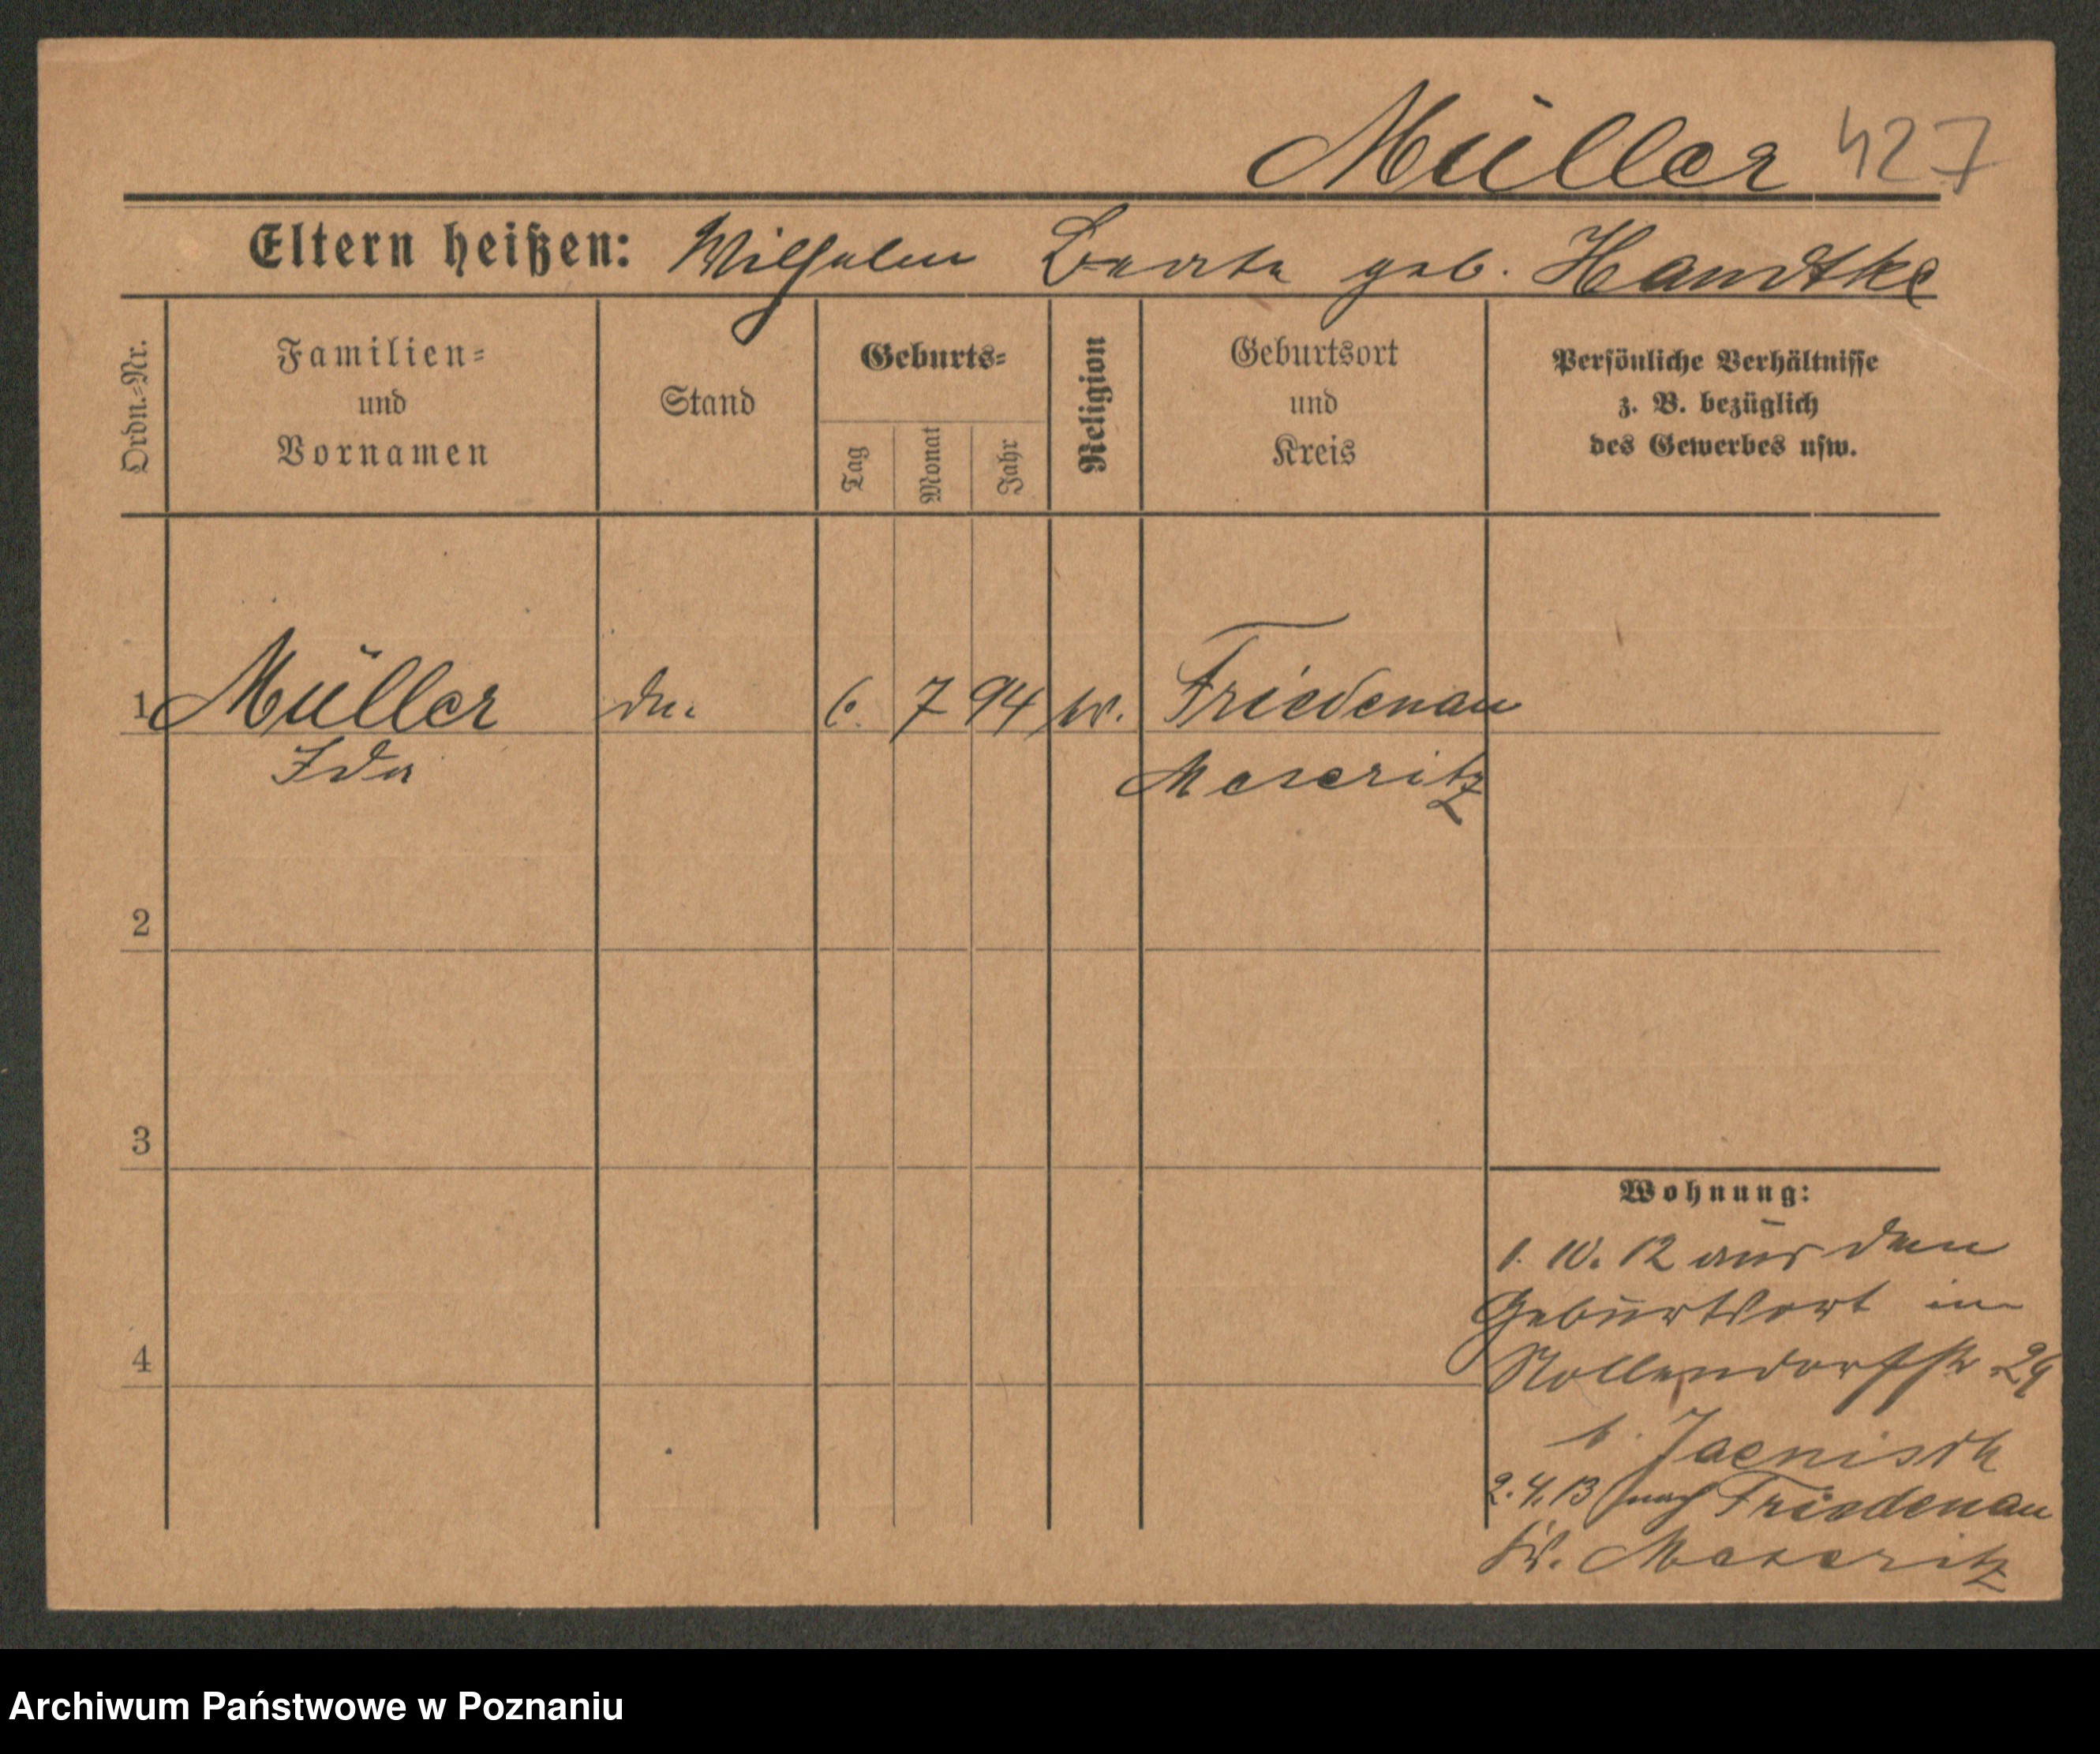 Müller 427
Eltern heißen: Wilhelm Berta geb. Handtke
Ordn.-Nr.
Familien-
und
Vornamen
Stand
Geburts-
Tag
Monat
Jahr
Religion
Geburtsort
und
Kreis
Persönliche Verhältnisse
z. B. bezüglich
des Gewerbes usw.
1 Müller 6. 7 94 Friedenau
Ida Meseritz
2
3
Wohnung:
1. 10. 12 aus dem
Geburtsort in
4
Nollendorfstr 29
b. Jaenisch
2. 4. 13 nach Friedenau
Kr. Meseritz
Archiwum Państwowe w Poznaniu